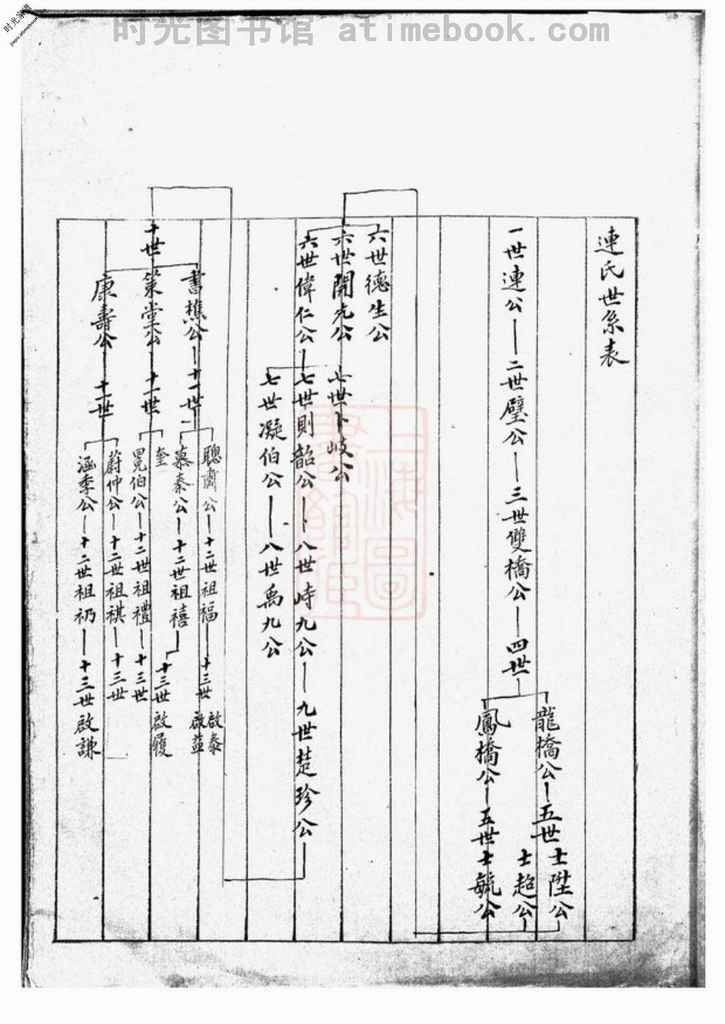 时光图书馆 atimebook.com
时光图书馆
連氏世系表
一世連公 二世璧公 三世雙橋公 四世
龍橋公 五世 士陞公
士超公
鳳橋公 五世士毓公
六世德生公
六世開先公 七世卜岐公
六世偉仁公 七世則韶公 八世峙九公 九世楚珍公
七世凝伯公 八世禹九公
十世
書樵公 十一世
聰肅公 十二世祖福 十三世 啟泰
啟益
慕秦公 十二世祖禧 十三世啟履
策堂公 十一世
奎
冕伯公 十二世祖禮 十三世
康壽公 十一世
蔚仲公 十二世祖祺 十三世
涵季公 十二世祖礽 十三世啟謙
上海圖書館藏